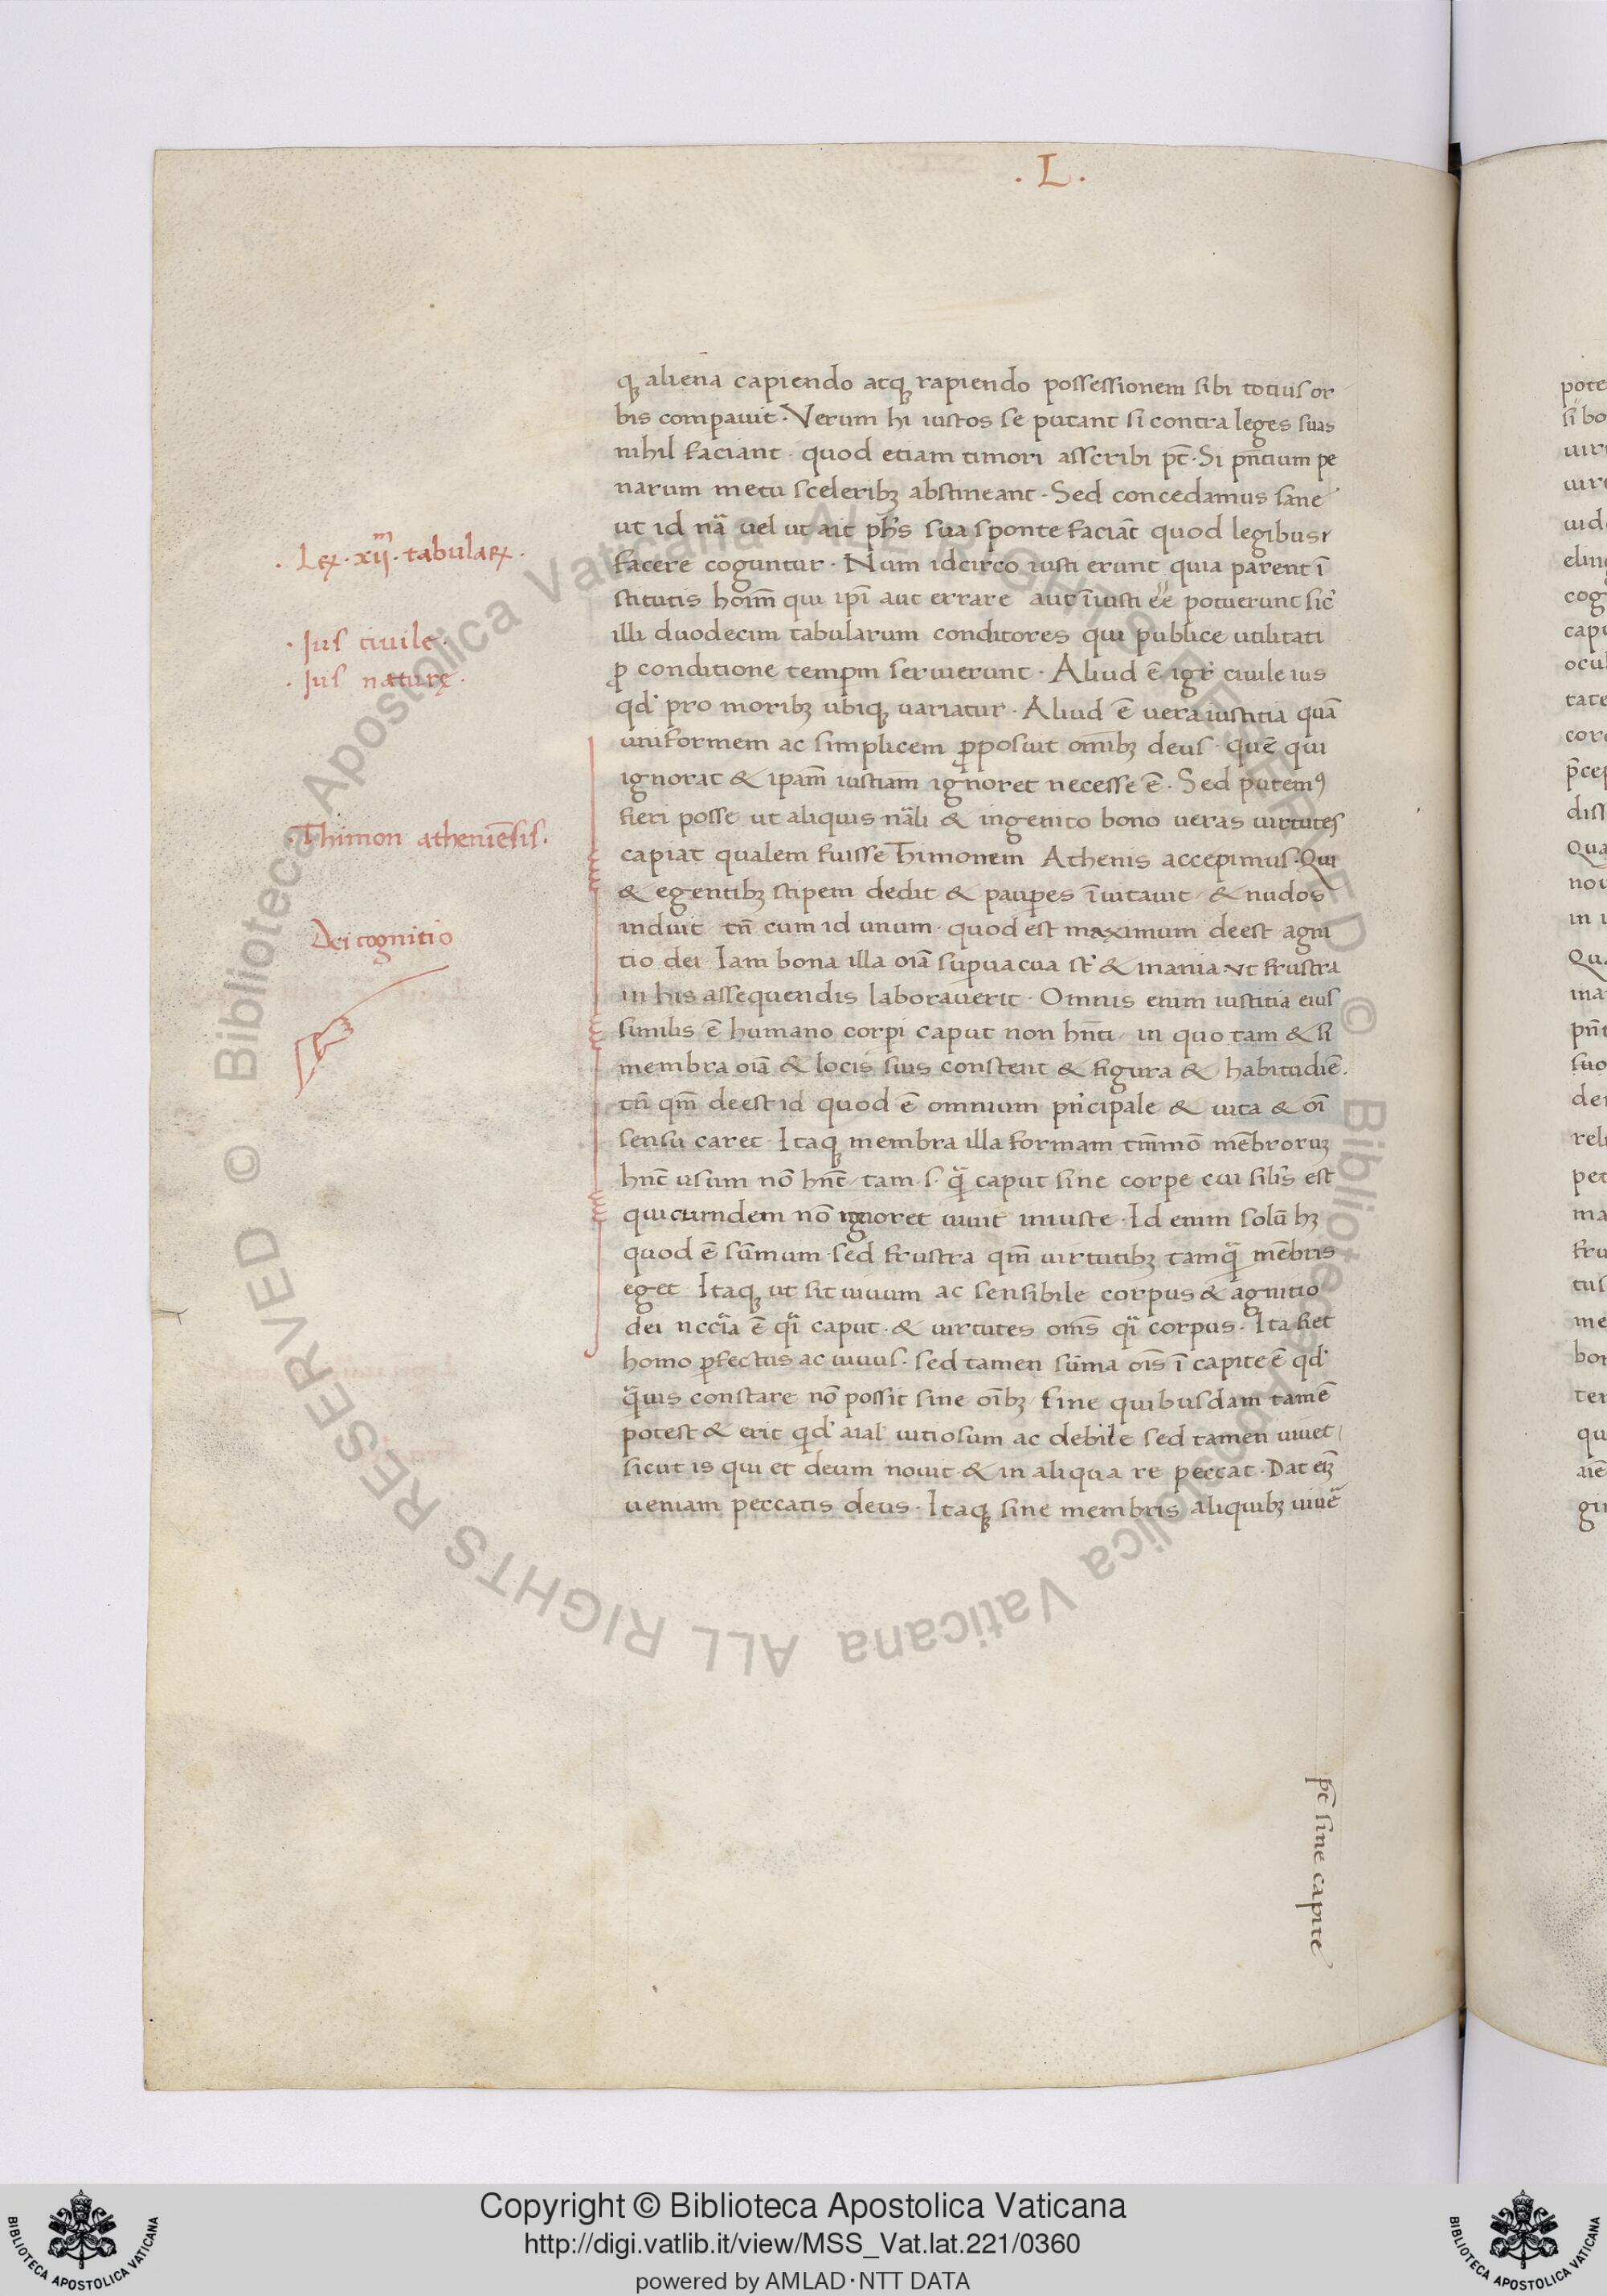 . L .
qꝫ aliena capiendo atqꝫ rapiendo possessionem sibi totius or
bis compauit. Verum hi iustos se putant si contra leges suas
nihil faciant. quod etiam timori asscribi pt̄. Si pn̄tium pe
narum metu sceleribꝫ abstineant. Sed concedamus sane
ut id nā uel ut ait ph̄s sua sponte faciāt quod legibus
facere coguntur. Num idcirco iusti erunt quia parent ī
stitutis hoīm qui ipī aut errare aut īiusti ēē potuerunt sic̄
illi duodecim tabularum conditores qui publice utilitati
ꝓ conditione temꝑm seruierunt. Aliud ē igr̄ ciuile ius
qd' pro moribꝫ ubiqꝫ uariatur. Aliud ē uera iustitia quā
uniformem ac simplicem ꝓposuit omībꝫ deus. quē qui
ignorat & ipam̄ iustiam̄ ignoret necesse ē. Sed putemꝰ
fieri posse ut aliquis nāli & ingenito bono ueras uirtutes
capiat qualem fuisse Thimonem Athenis accepimus. Qui
& egentibꝫ stipem dedit & pauꝑes īuitauit / & nudos
induit tn̄ cum id unum. quod est maximum deest agni
tio dei Iam bona illa oīā suꝑuacua st̄ & inania ut frustra
in his assequendis laborauerit. Omnis enim iustitia eius
similis ē humano corpi caput non hn̄ti / in quo tam & si
membra oīā & locis suis constent & figura & habitudiē.
tn̄ qm̄ deest id quod ē omnium pn̄cipale & uita & oī
sensu caret. Itaqꝫ membra illa formam tm̄mō mēbroruꝫ
hn̄t usum nō hn̄t / tam. s. q̄ caput sine corpe cui silis̄ est
qui cumdem nō ignoret uiuit iniuste. Id enim solū hꝫ
quod ē sūmum. sed frustra qm̄ uirtutibꝫ tamq̄ mēbris
eget Itaqꝫ ut sit uiuum ac sensibile corpus & agnitio
dei nccīā ē qī caput. & uirtutes oms̄ qī corpus. Ita fiet
homo ꝑfectus ac uiuus. sed tamen sūma oīs ī capite ē qd'
q̄uis constare nō possit sine oībꝫ / sine quibusdam tamē
potest & erit qd' aīal uitiosum ac debile sed tamen uiuet
sicut is qui et deum nouit & in aliqua re peccat. Dat eīꝫ
ueniam peccatis deus. Itaqꝫ sine membris aliquibꝫ uiuē
pt̄ sine capite
. Lex. xijᵐ. tabulaꝝ.
. Ius ciuile.
. Ius naturę.
. Thimon atheniēsis.
Dei cognitio
pote
si bo
uir
uire
uid
elin
cog
capu
ocul
tate
core
p̄cep
diss
Qua
nou
in u
Qua
pn̄t
suo
der
reli
pet
ma
fru
tus
me
bon
ter
qu
aiē
gin
© Biblioteca Apostolica Vaticana ALL RIGHTS RESERVED © Biblioteca Apostolica Vaticana ALL RIGHTS RESERVED
BIBLIOTECA APOSTOLICA VATICANA
Copyright © Biblioteca Apostolica Vaticana
http://digi.vatlib.it/view/MSS_Vat.lat.221/0360
powered by AMLAD·NTT DATA
BIBLIOTECA APOSTOLICA VATICANA